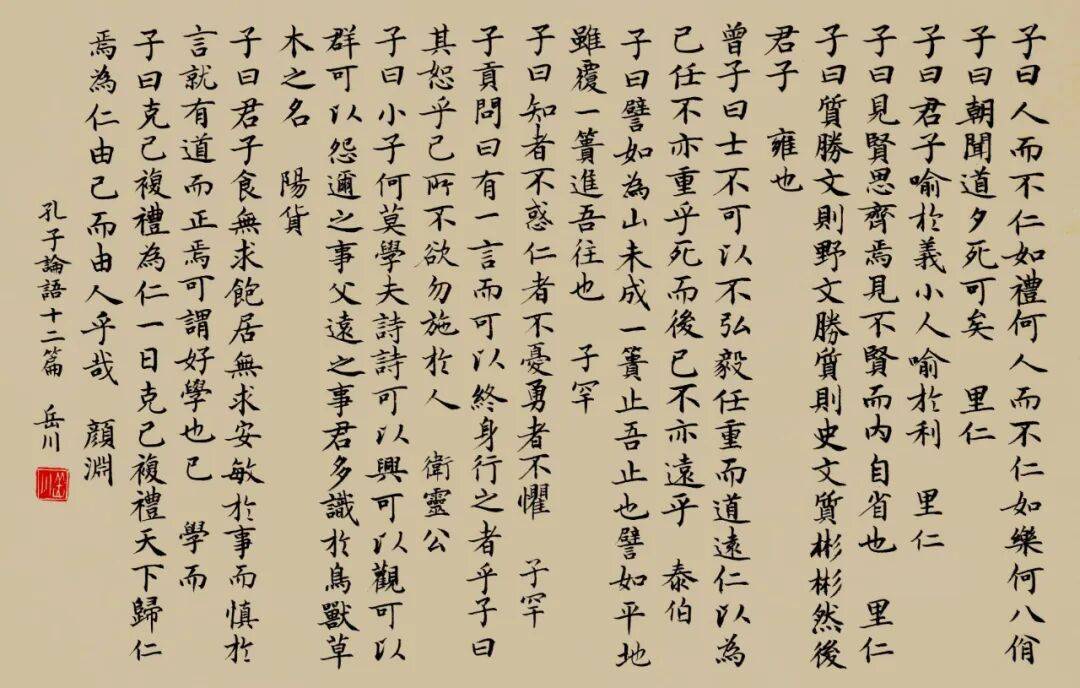 子曰人而不仁如禮何人而不仁如樂何八佾
子曰朝聞道夕死可矣 里仁
子曰君子喻於義小人喻於利 里仁
子曰見賢思齊焉見不賢而內自省也 里仁
子曰質勝文則野文勝質則史文質彬彬然後
君子 雍也
曾子曰士不可以不弘毅任重而道遠仁以為
己任不亦重乎死而後已不亦遠乎 泰伯
子曰譬如為山未成一簣止吾止也譬如平地
雖覆一簣進吾往也 子罕
子曰知者不惑仁者不憂勇者不懼 子罕
子貢問曰有一言而可以終身行之者乎子曰
其恕乎己所不欲勿施於人 衛靈公
子曰小子何莫學夫詩詩可以興可以觀可以
群可以怨邇之事父遠之事君多識於鳥獸草
木之名 陽貨
子曰君子食無求飽居無求安敏於事而慎於
言就有道而正焉可謂好學也已 學而
子曰克己複禮為仁一日克己複禮天下歸仁
焉為仁由己而由人乎哉 顏淵
孔子論語十二篇 岳川